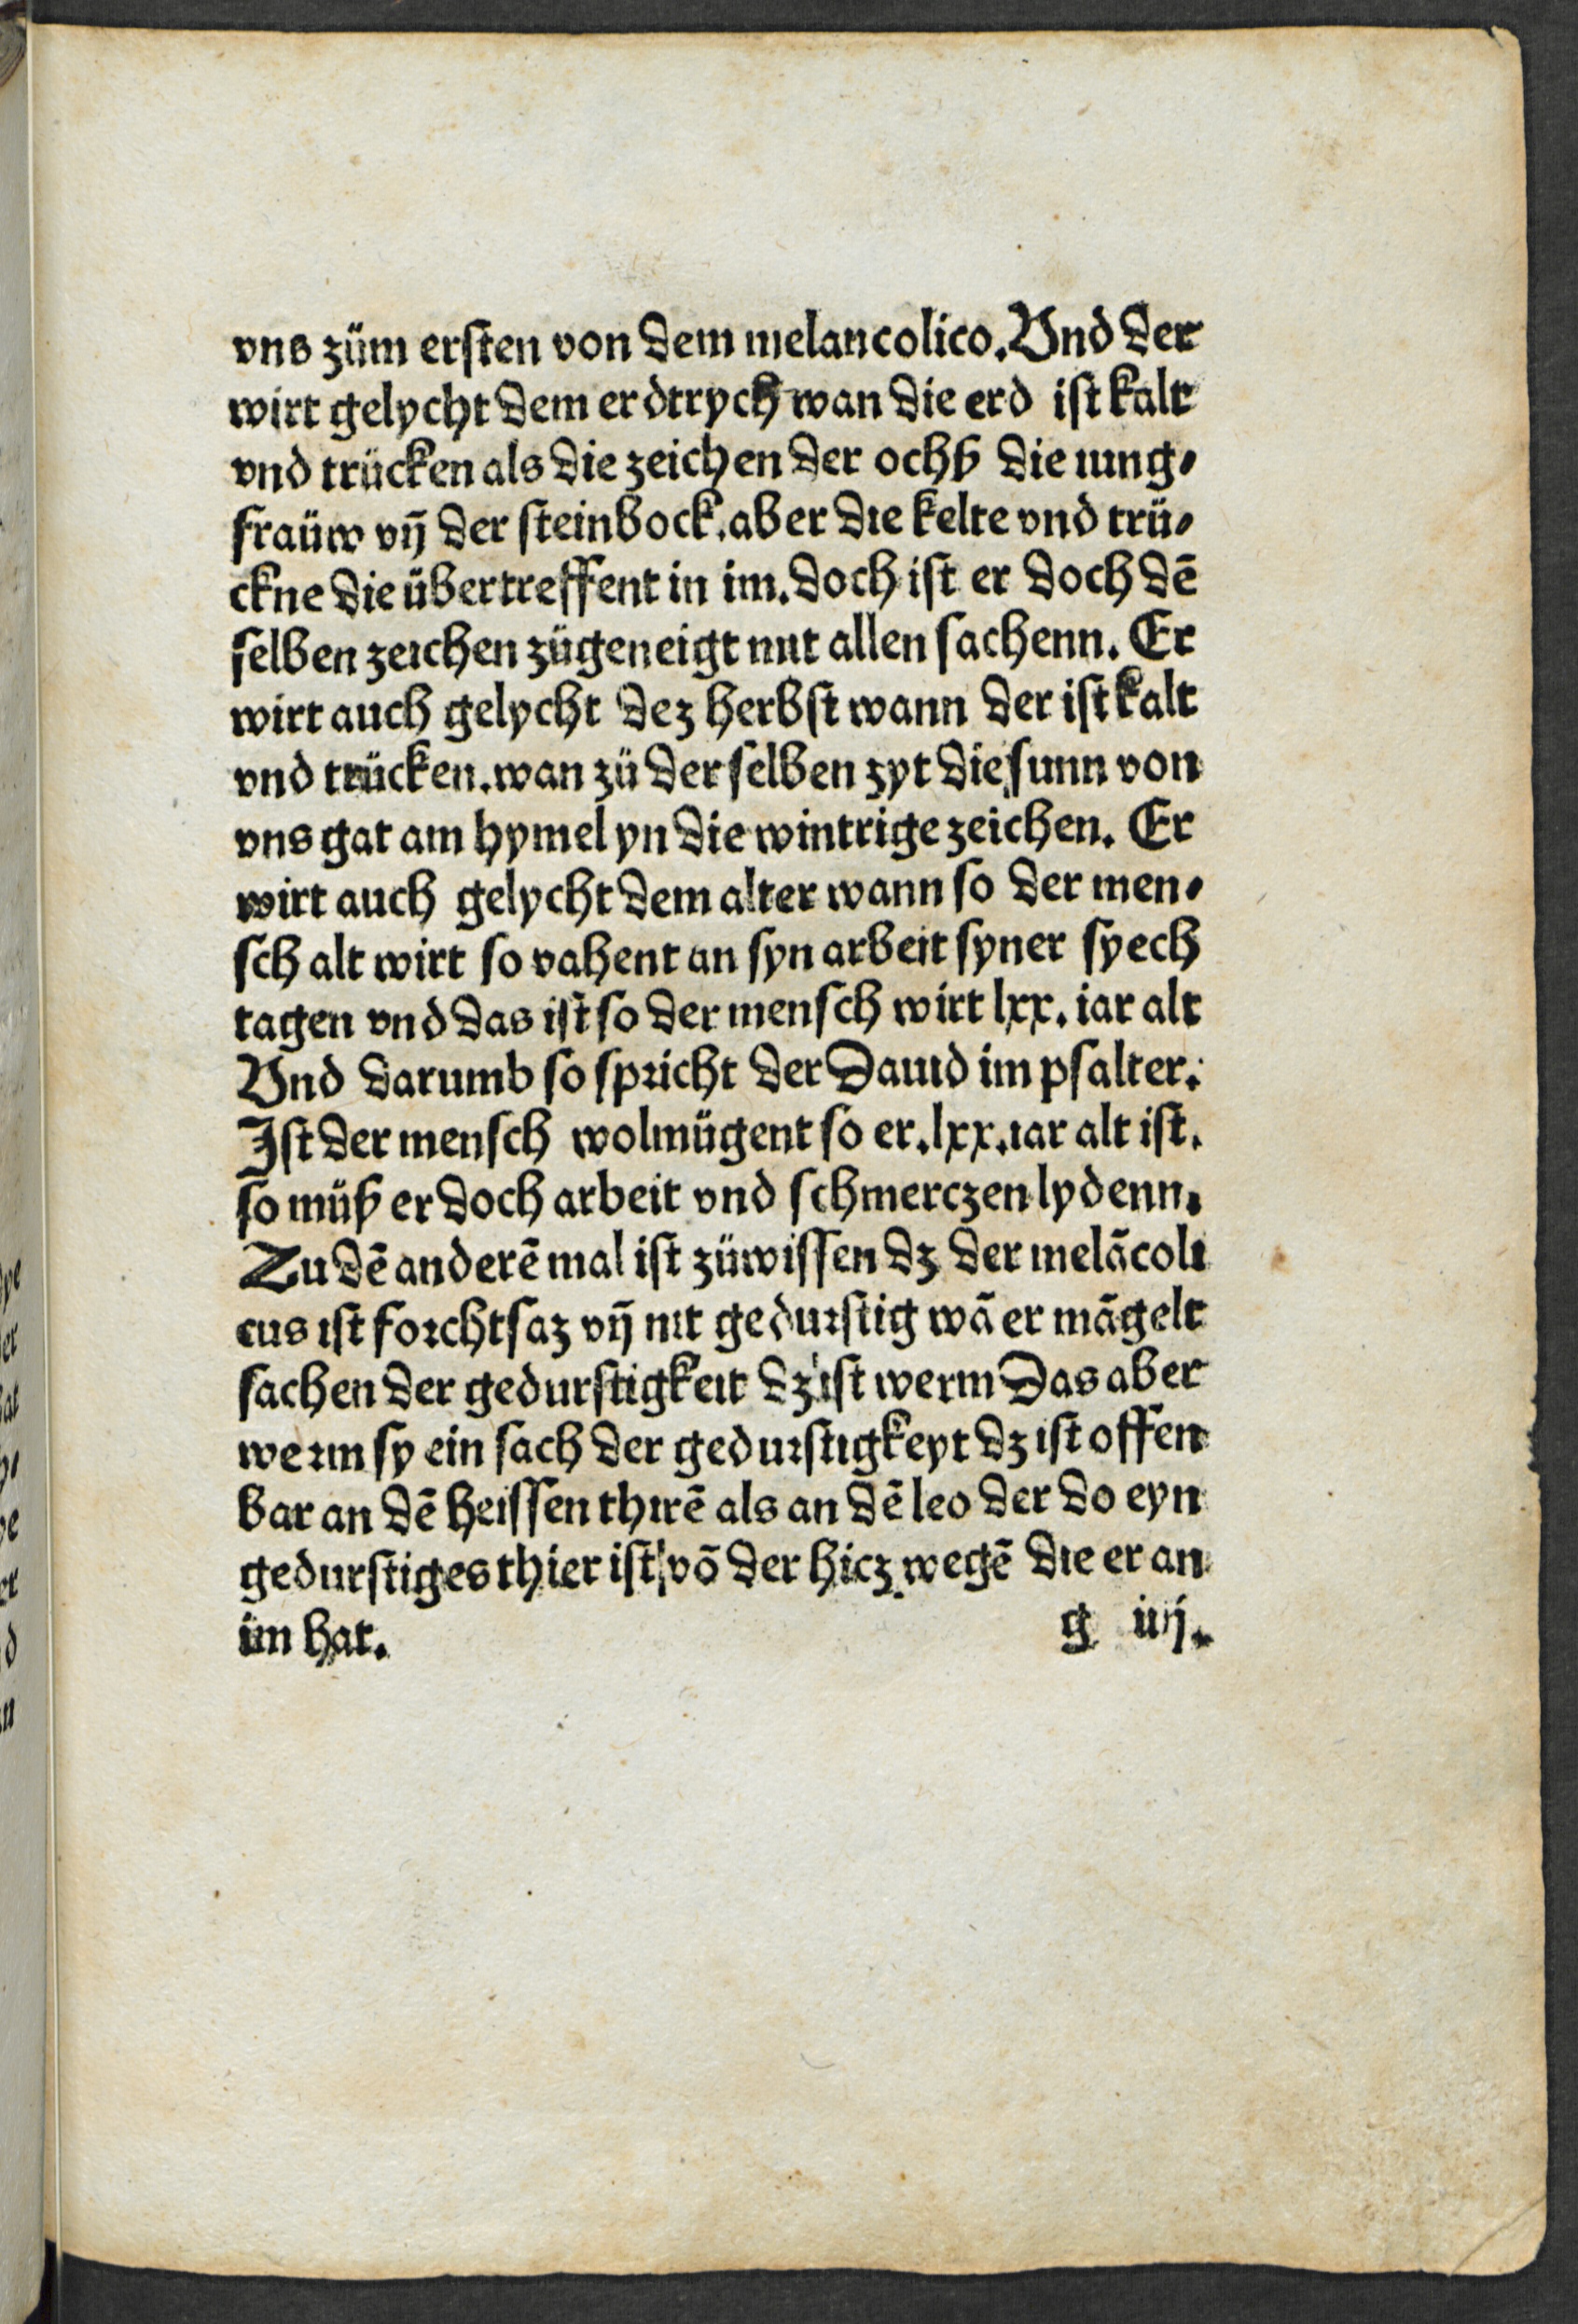 vns züm ersten von dem melancolico. Vnd der
wirt gelycht dem erdtrych wan die erd ist kalt
vnd trücken als die zeichen der ochß die iung⸗
fraüw vñ der steinbock. aber die kelte vnd trü⸗
ckne die übertreffent in im. doch ist er doch dē
selben zeichen zügeneigt mit allen sachenn. Er
wirt auch gelycht dez herbst wann der ist kalt
vnd trücken. wan zü der selben zyt die sunn von
vns gat am hymel yn die wintrige zeichen. Er
wirt auch gelycht dem alter wann so der men⸗
sch alt wirt so vahent an syn arbeit syner syech
tagen vnd das ist so der mensch wirt lxx. iar alt
Vnd darumb so spricht der Dauid im psalter.
Ist der mensch wolmügent so er. lxx. iar alt ist.
so müß er doch arbeit vnd schmerczen lydenn.
Zu dē anderē mal ist züwissen dz der melācoli
cus ist forchtsaz vñ nit gedurstig wā er māgelt
sachen der gedurstigkeit dz ist werm Das aber
werm sy ein sach der gedurstigkeyt dz ist offen
bar an dē heissen thirē als an dē leo der do eyn
gedurstiges thier ist vō der hicz wegē die er an
im hat. g iiij.